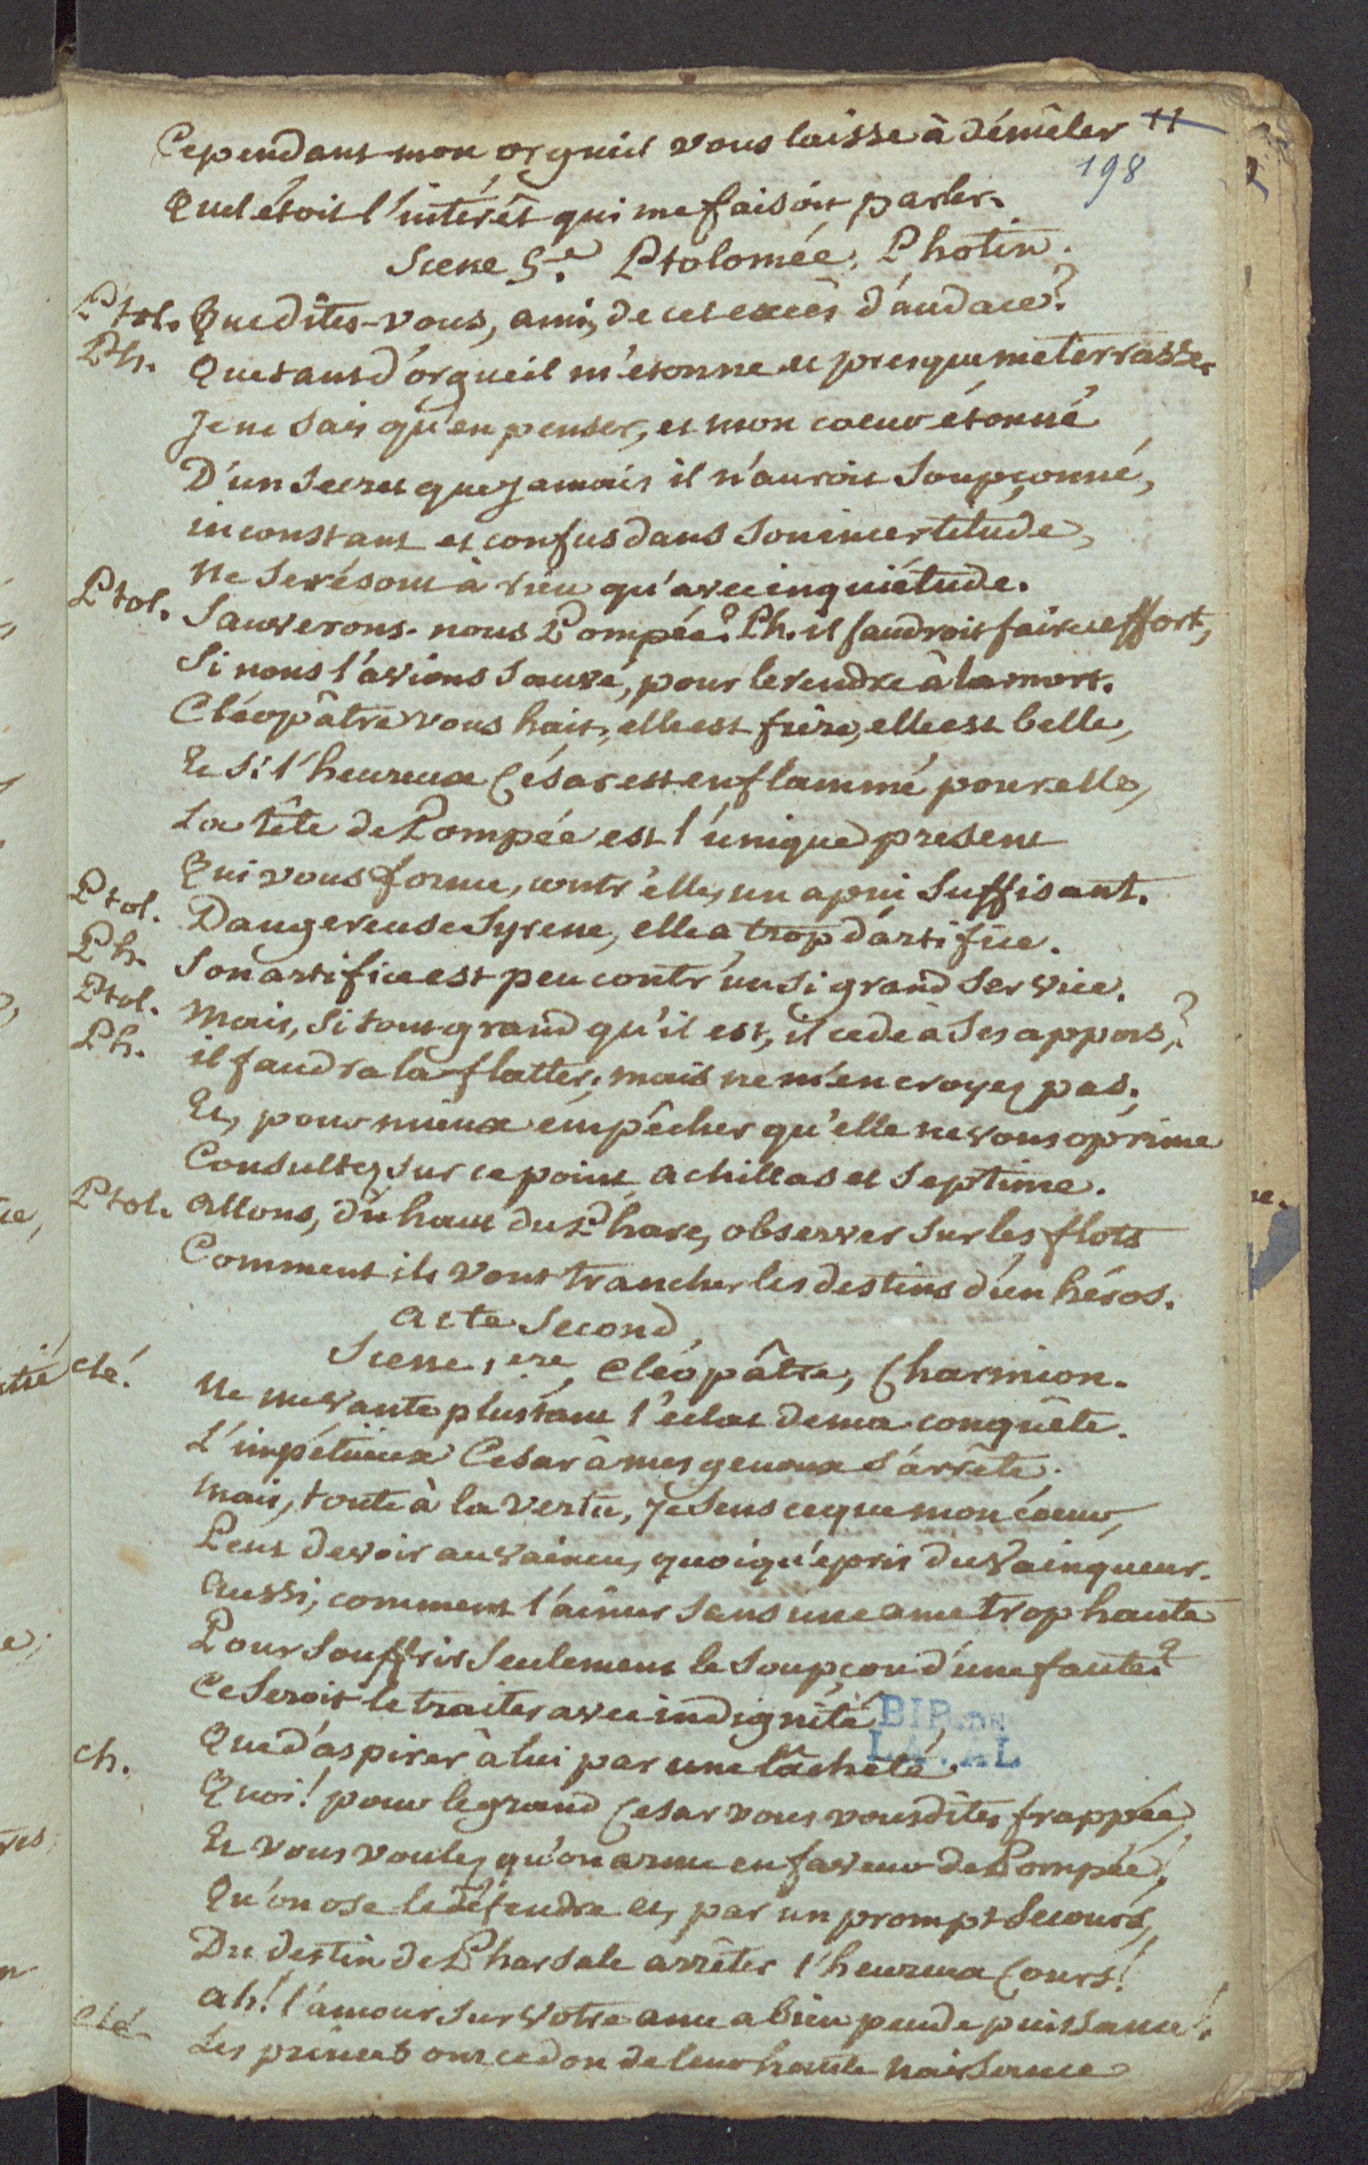 Cependant mon orgueil vous laisse à démêler 11
198
Quel étoit l'intérêt qui me faisoit parler.
Scene 5.e Ptolomée, Photin.
Ptol. Que dîtes-vous, ami, de cet excès d'audace?
Ph. Que tant d'orgueil m'étonne et presque me terrasse.
Je ne sais qu'en penser, et mon coeur étonné
D'un secret que jamais il n'auroit soupçonné,
inconstant et confus dans son incertitude,
Ne se résout à rien qu'avec inquiétude.
Ptol. Sauverons-nous Pompée? Ph. il faudroit faire effort,
Si nous l'avions sauvé, pour le rendre à la mort.
Cléopâtre vous hait, elle est fière, elle est belle,
Et si l'heureux César est enflammé pour elle,
La tête de Pompée est l'unique present
Qui vous forme, contr'elle, un apui suffisant.
Ptol. Dangereuse Syrene, elle a trop d'artifice.
Ph. Son artifice est peu contr'un si grand service.
Ptol. Mais, si tout grand qu'il est, il cede à ses appas?
Ph. il faudra la flatter, mais ne m'en croyez pas.
Et, pour mieux empêcher qu'elle ne vous oprime
Consultez sur ce point achillas et Septime.
Ptol. Allons, du haut du Phare, observer sur les flots
Comment ils vont trancher les destins d'un héros.
Acte Second,
Scene 1.ere Cléopâtre, Charmion.
Clé. Ne me vante plus tant l'eclat de ma conquête.
L'impétueux Cesar à mes genoux s'arrête.
Mais, toute à la vertu, je sens ce que mon coeur,
Peut devoir au vaincu, quoiqu'epris du vainqueur.
Aussi, comment l'aimer sans une ame trop haute
Pour souffrir seulement le soupçon d'une faute?
Ce seroit le traiter avec indignité
Que d'aspirer à lui par une lâcheté.
BIB. DE
LAVAL
Ch. Quoi! pour le grand Cesar vous vous dîtes frappée,
Et vous voulez qu'on arme en faveur de Pompée,
Qu'on ose le défendre et, par un prompt secours,
Du destin de Pharsale arrêter l'heureux cours!
ah! l'amour sur votre ame a bien peu de puissance!
Clé. Les princes ont ce don de leur haute naissance